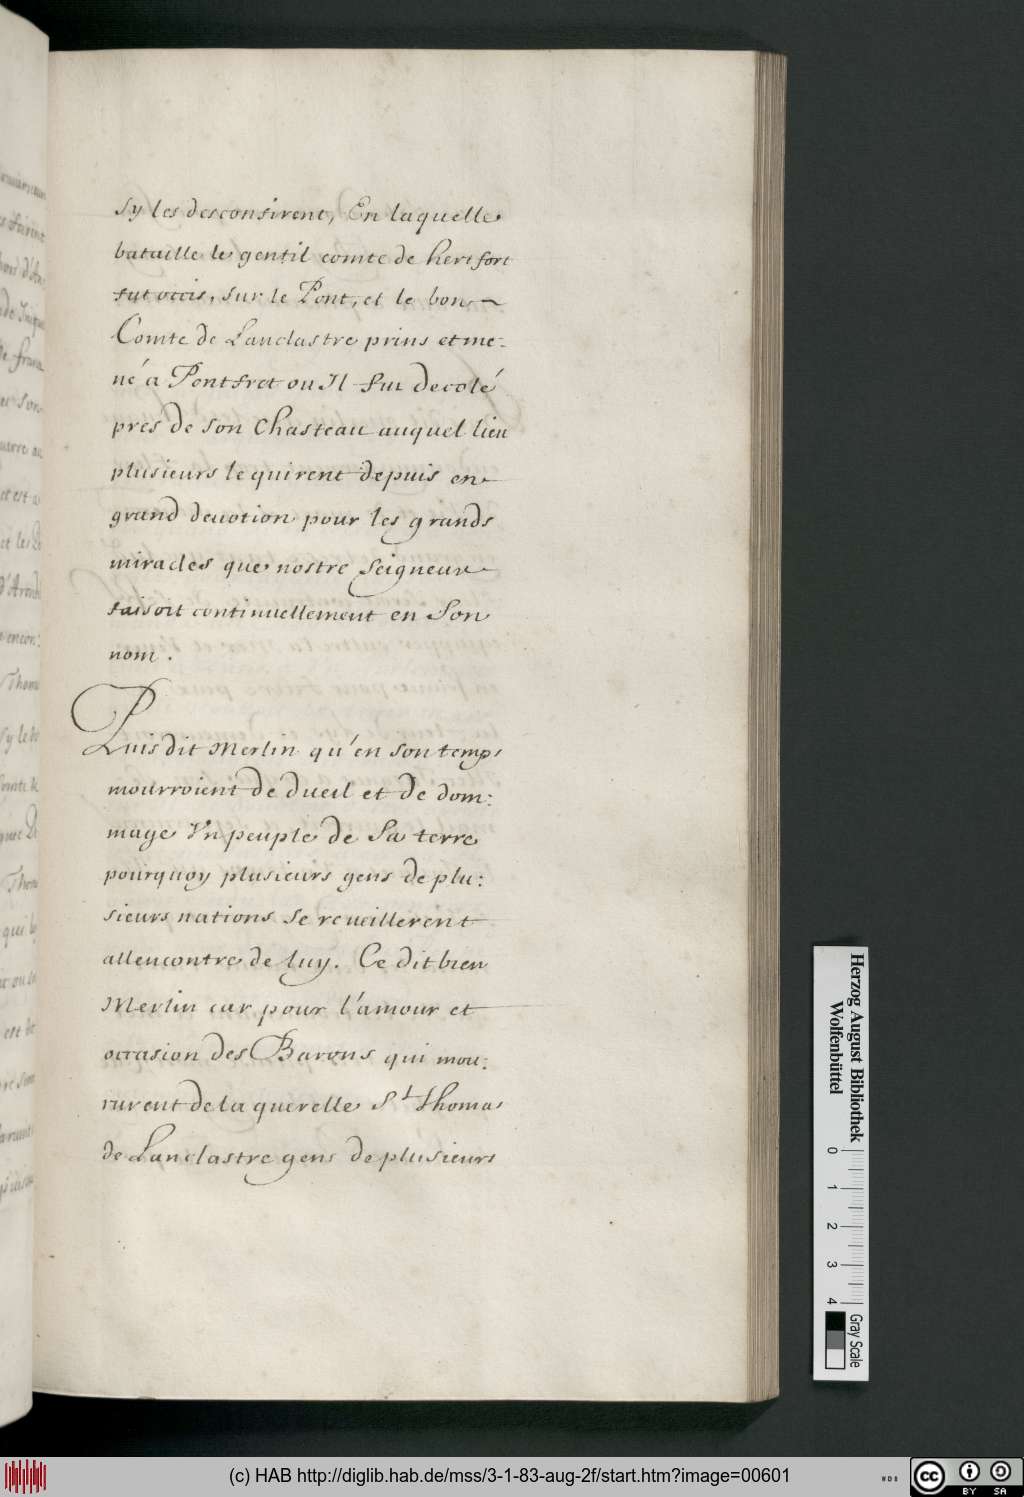 sy les desconfirent, En laquelle
bataille le gentil comte de hertfort
fut occis, sur le Pont, et le bon
Comte de Lanclastre prins et me-
né a Pontfret ou Il fut decolé
pres de son Chasteau auquel lieu
plusieurs le quirent depuis en
grand devotion pour les grands
miracles que nostre seigneur
faisoit continuellement en son
nom.
Puis dit Merlin qu'en son temps
mourroient de dueil et de dom:
mage Un peuple de Sa terre
pourquoy plusieurs gens de plu:
sieurs nations se reveillerent
allencontre de luy. Ce dit bien
Merlin car pour l'amour et
occasion des Barons qui mou:
rurent de la querelle St thomas
de Lanclastre gens de plusieurs
Herzog August Bibliothek
Wolfenbüttel
0 1 2 3 4
Gray Scale
(c) HAB http://diglib.hab.de/mss/3-1-83-aug-2f/start.htm?image=00601
cc BY SA